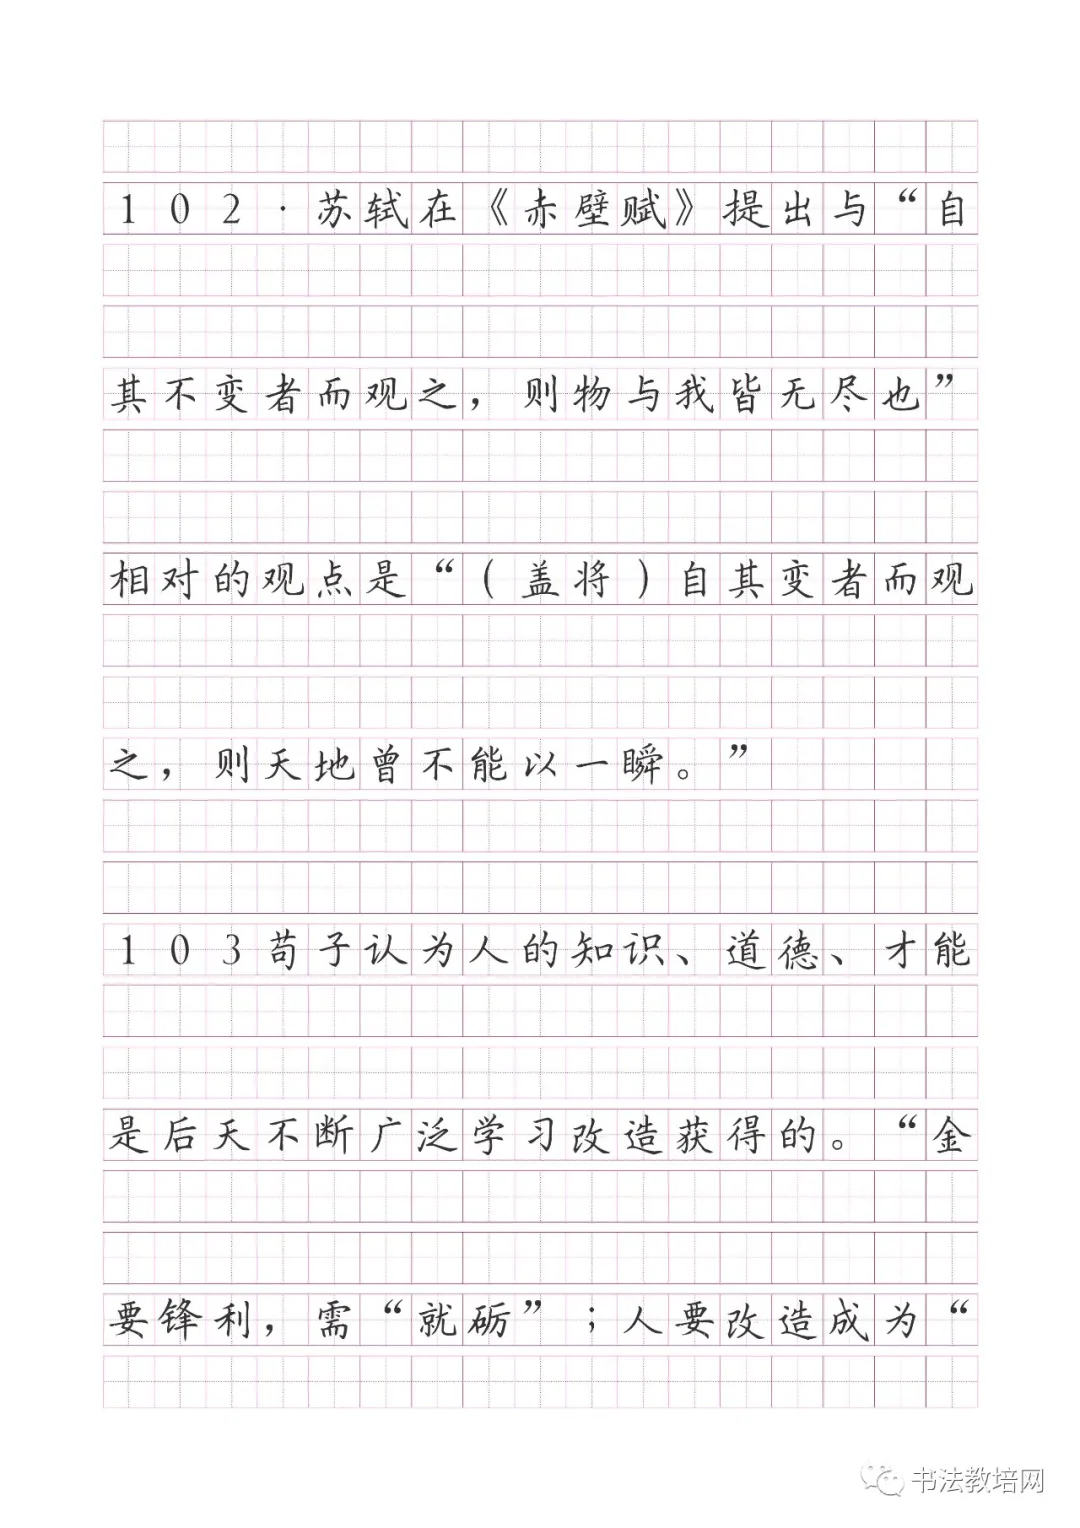 102·苏轼在《赤壁赋》提出与“自
其不变者而观之，则物与我皆无尽也”
相对的观点是“（盖将）自其变者而观
之，则天地曾不能以一瞬。”
103苟子认为人的知识、道德、才能
是后天不断广泛学习改造获得的。“金
要锋利，需“就砺”；人要改造成为“
书法教培网